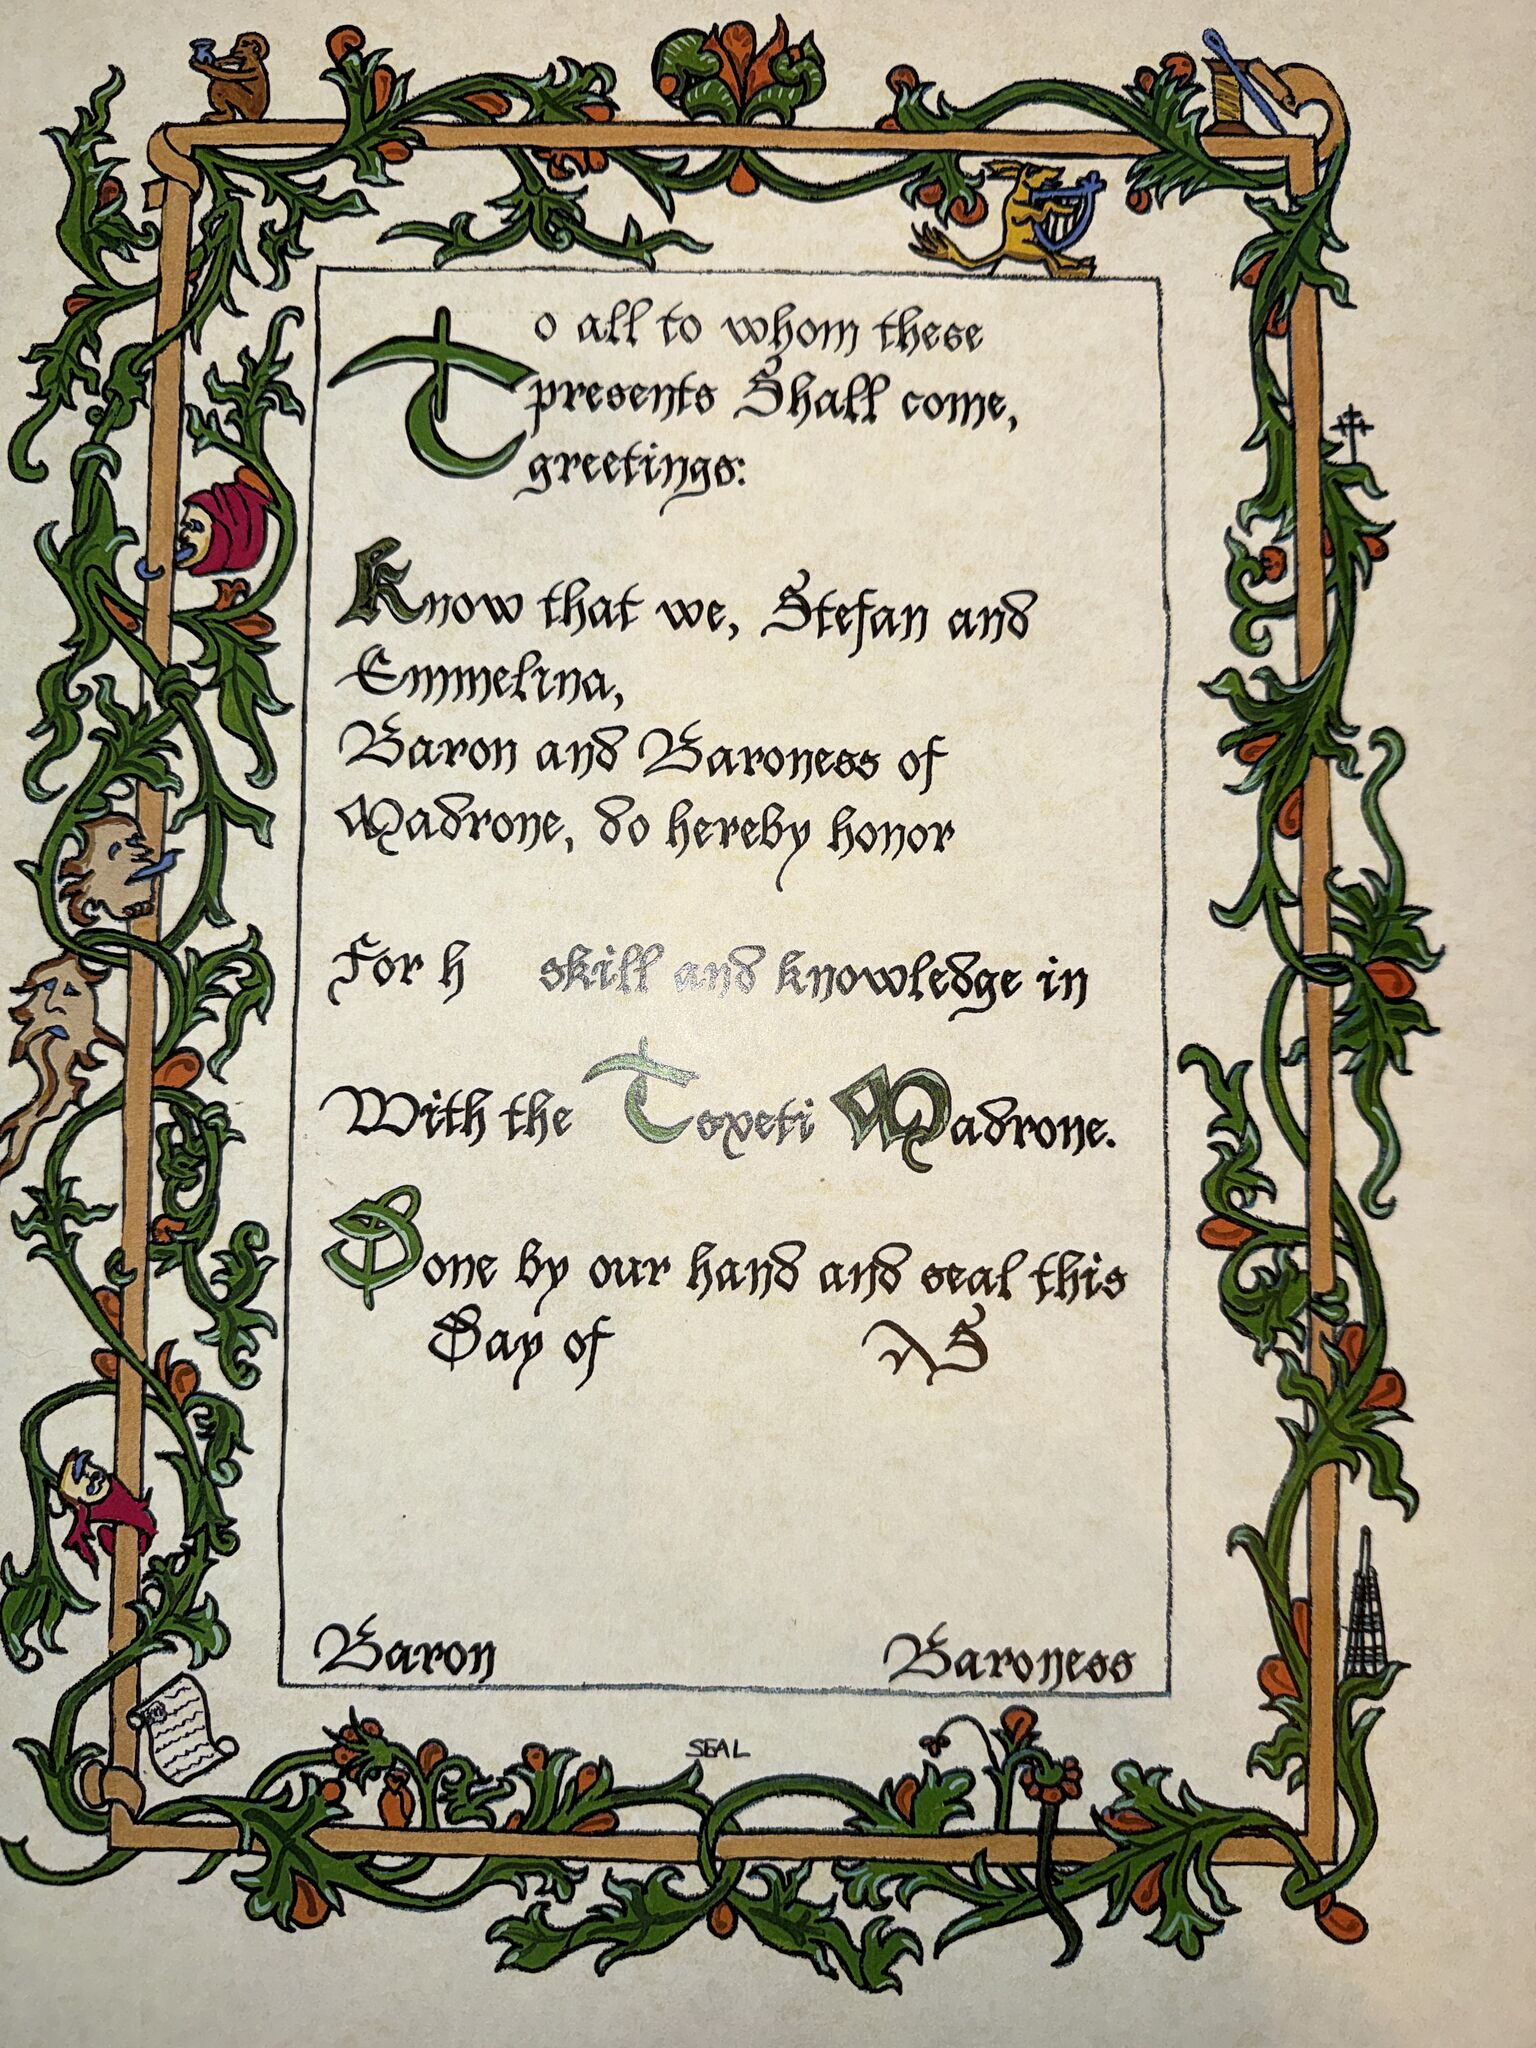 To all to whom these
presents Shall come,
greetings:
Know that we, Stefan and
Emmelina,
Baron and Baroness of
Madrone, do hereby honor
For h skill and knowledge in
With the Tsveti Madrone.
Done by our hand and seal this
Day of AS
Baron Baroness
SEAL